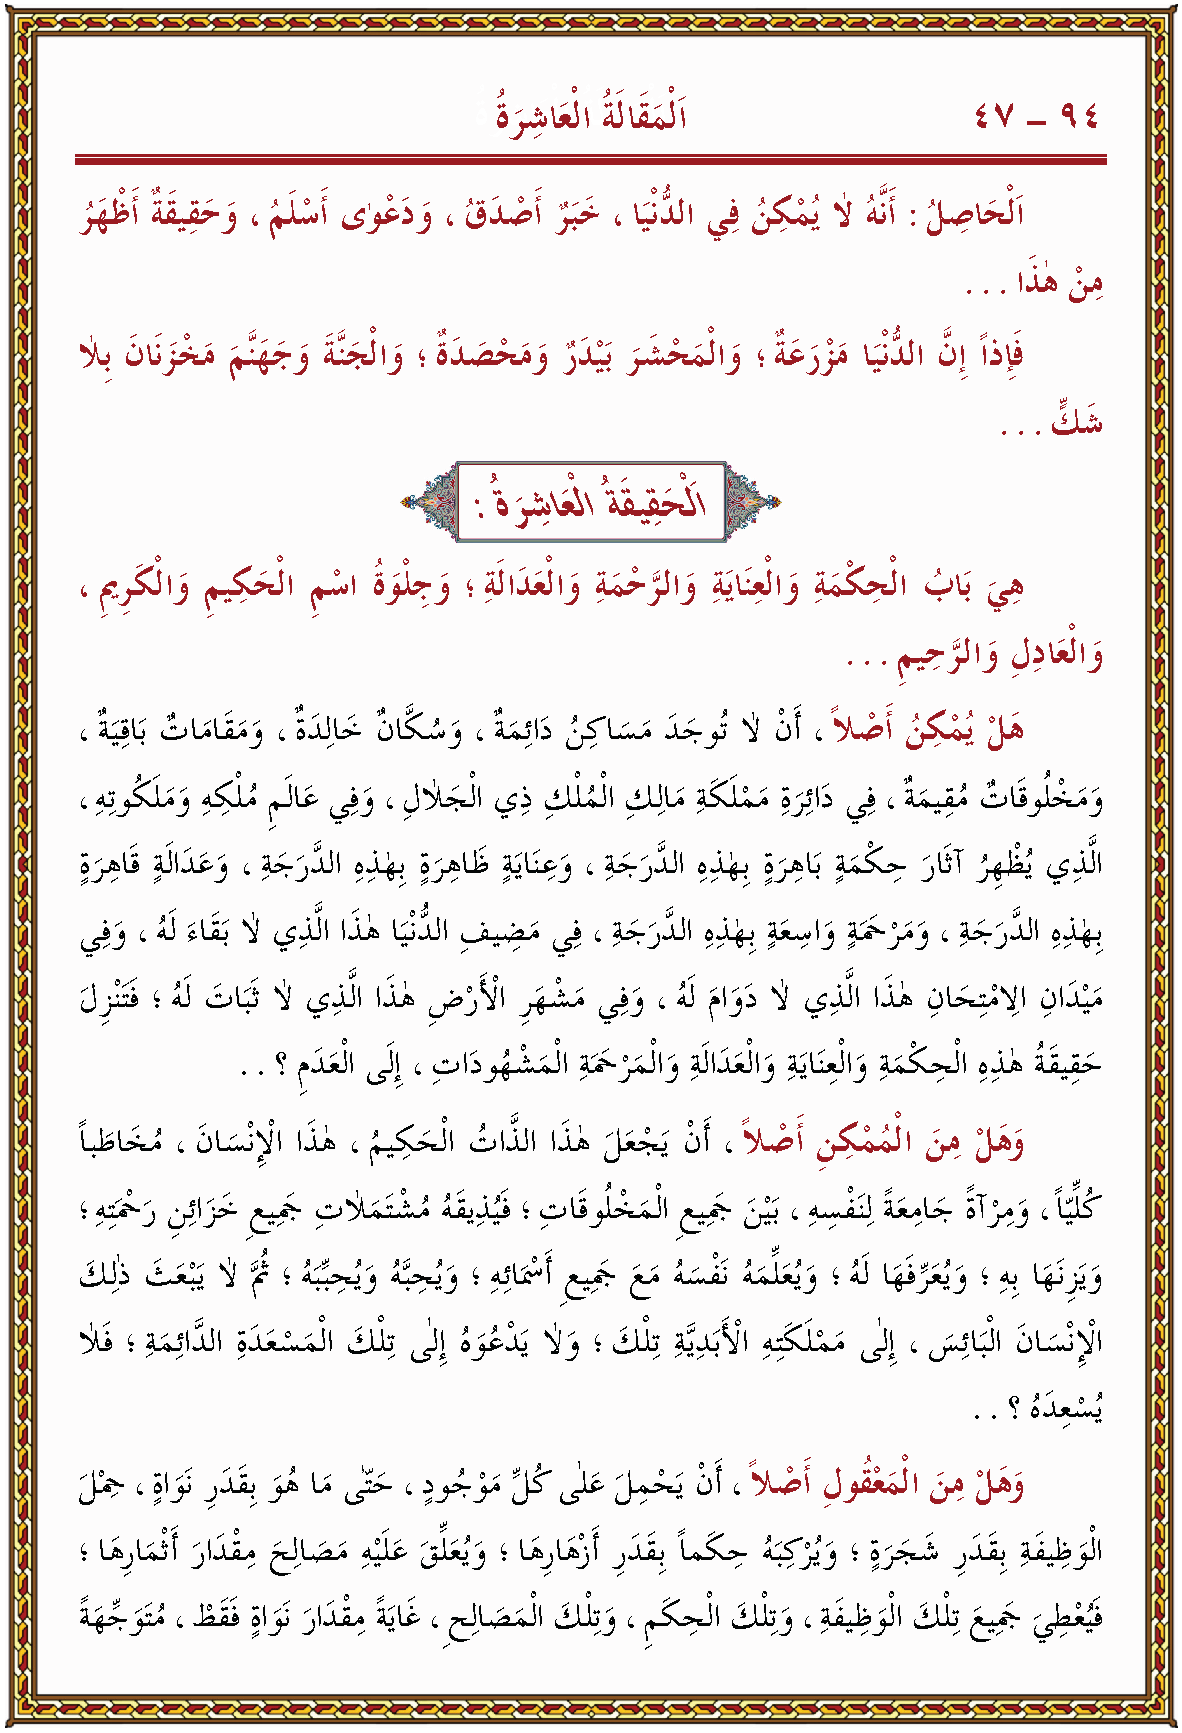 ٩٤ – ٤٧ اَلْمَقَالَةُ الْعَاشِرَةُ
اَلْحَاصِلُ : أَنَّهُ لاٰ يُمْكِنُ فِي الدُّنْيَا ، خَبَرٌ أَصْدَقُ ، وَدَعْوٰى أَسْلَمُ ، وَحَقِيقَةٌ أَظْهَرُ
مِنْ هٰذَا . . .
فَإِذاً إِنَّ الدُّنْيَا مَزْرَعَةٌ ؛ وَالْمَحْشَرَ بَيْدَرٌ وَمَحْصَدَةٌ ؛ وَالْجَنَّةَ وَجَهَنَّمَ مَخْزَنَانَ بِلاٰ
شَكٍّ . . .
اَلْحَقِيقَةُ الْعَاشِرَةُ :
هِيَ بَابُ الْحِكْمَةِ وَالْعِنَايَةِ وَالرَّحْمَةِ وَالْعَدَالَةِ ؛ وَجِلْوَةُ اسْمِ الْحَكِيمِ وَالْكَرِيمِ ،
وَالْعَادِلِ وَالرَّحِيمِ . . .
هَلْ يُمْكِنُ أَصْلاً ، أَنْ لاٰ تُوجَدَ مَسَاكِنُ دَائِمَةٌ ، وَسُكَّانٌ خَالِدَةٌ ، وَمَقَامَاتٌ بَاقِيَةٌ ،
وَمَخْلُوقَاتٌ مُقِيمَةٌ ، فِي دَائِرَةِ مَمْلَكَةِ مَالِكِ الْمُلْكِ ذِي الْجَلاٰلِ ، وَفِي عَالَمِ مُلْكِهِ وَمَلَكُوتِهِ ،
الَّذِي يُظْهِرُ آثَارَ حِكْمَةٍ بَاهِرَةٍ بِهٰذِهِ الدَّرَجَةِ ، وَعِنَايَةٍ ظَاهِرَةٍ بِهٰذِهِ الدَّرَجَةِ ، وَعَدَالَةٍ قَاهِرَةٍ
بِهٰذِهِ الدَّرَجَةِ ، وَمَرْحَمَةٍ وَاسِعَةٍ بِهٰذِهِ الدَّرَجَةِ ، فِي مَضِيفِ الدُّنْيَا هٰذَا الَّذِي لاٰ بَقَاءَ لَهُ ، وَفِي
مَيْدَانِ الاِمْتِحَانِ هٰذَا الَّذِي لاٰ دَوَامَ لَهُ ، وَفِي مَشْهَرِ الْأَرْضِ هٰذَا الَّذِي لاٰ ثَبَاتَ لَهُ ؛ فَتَنْزِلَ
حَقِيقَةُ هٰذِهِ الْحِكْمَةِ وَالْعِنَايَةِ وَالْعَدَالَةِ وَالْمَرْحَمَةِ الْمَشْهُودَاتِ ، إِلَى الْعَدَمِ ؟ . .
وَهَلْ مِنَ الْمُمْكِنِ أَصْلاً ، أَنْ يَجْعَلَ هٰذَا الذَّاتُ الْحَكِيمُ ، هٰذَا الْإِنْسَانَ ، مُخَاطَباً
كُلِّيّاً ، وَمِرْآةً جَامِعَةً لِنَفْسِهِ ، بَيْنَ جَمِيعِ الْمَخْلُوقَاتِ ؛ فَيُذِيقَهُ مُشْتَمَلاٰتِ جَمِيعِ خَزَائِنِ رَحْمَتِهِ ؛
وَيَزِنَهَا بِهِ ؛ وَيُعَرِّفَهَا لَهُ ؛ وَيُعَلِّمَهُ نَفْسَهُ مَعَ جَمِيعِ أَسْمَائِهِ ؛ وَيُحِبَّهُ وَيُحَبِّبَهُ ؛ ثُمَّ لاٰ يَبْعَثَ ذٰلِكَ
الْإِنْسَانَ الْبَائِسَ ، إِلٰى مَمْلَكَتِهِ الْأَبَدِيَّةِ تِلْكَ ؛ وَلاٰ يَدْعُوَهُ إِلٰى تِلْكَ الْمَسْعَدَةِ الدَّائِمَةِ ؛ فَلاٰ
يُسْعِدَهُ ؟ . .
وَهَلْ مِنَ الْمَعْقُولِ أَصْلاً ، أَنْ يَحْمِلَ عَلٰى كُلِّ مَوْجُودٍ ، حَتّٰى مَا هُوَ بِقَدَرِ نَوَاةٍ ، حِمْلَ
الْوَظِيفَةِ بِقَدَرِ شَجَرَةٍ ؛ وَيُرْكِبَهُ حِكَماً بِقَدَرِ أَزْهَارِهَا ؛ وَيُعَلِّقَ عَلَيْهِ مَصَالِحَ مِقْدَارَ أَثْمَارِهَا ؛
فَيُعْطِيَ جَمِيعَ تِلْكَ الْوَظِيفَةِ ، وَتِلْكَ الْحِكَمِ ، وَتِلْكَ الْمَصَالِحِ ، غَايَةً مِقْدَارَ نَوَاةٍ فَقَطْ ، مُتَوَجِّهَةً